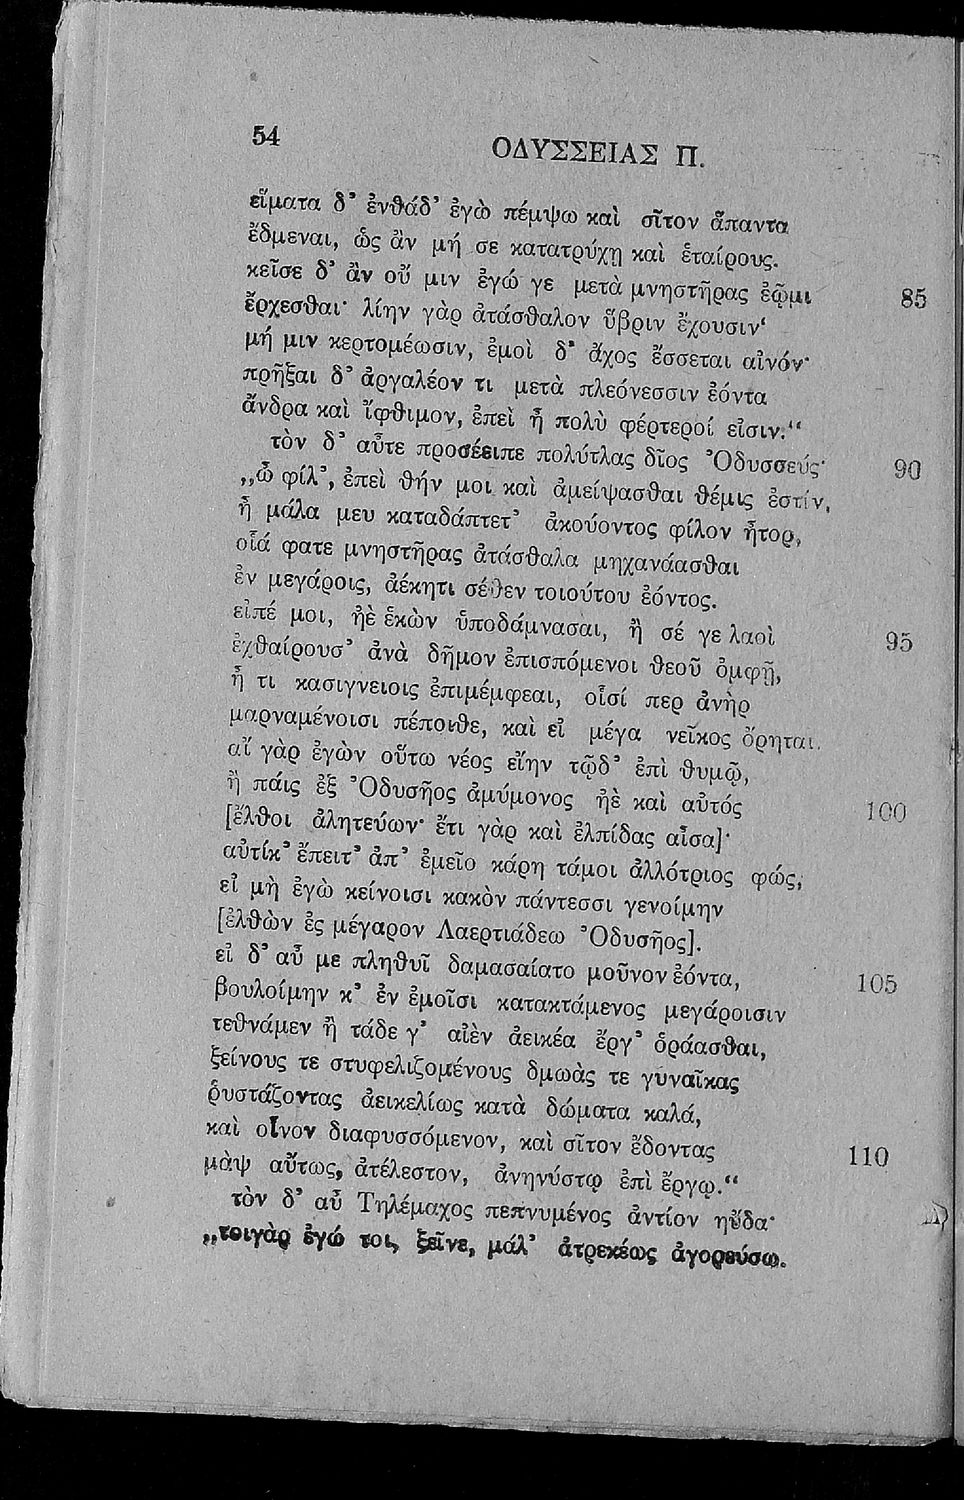 54
ΟΔΥΣΣΕΙΑΣ Π.
εἵματα δ' ἐνθάδ' ἐγὼ πέμψω καὶ σῖτον ἅπαντα
ἔδμεναι, ὡς ἂν μή σε κατατρύχῃ καὶ ἑταίρους.
κεῖσε δ' ἂν οὔ μιν ἐγώ γε μετὰ μνηστῆρας ἐῷμι 85
ἔρχεσθαι· λίην γὰρ ἀτάσθαλον ὕβριν ἔχουσιν·
μή μιν κερτομέωσιν, ἐμοὶ δ' ἄχος ἔσσεται αἰνόν·
πρῆξαι δ' ἀργαλέον τι μετὰ πλεόνεσσιν ἐόντα
ἄνδρα καὶ ἴφθιμον, ἐπεὶ ἦ πολὺ φέρτεροί εἰσιν."
τὸν δ' αὖτε προσέειπε πολύτλας δῖος Ὀδυσσεύς· 90
„ὦ φίλ', ἐπεὶ θήν μοι καὶ ἀμείψασθαι θέμις ἐστίν,
ἦ μάλα μευ καταδάπτετ' ἀκούοντος φίλον ἦτορ,
οἷά φατε μνηστῆρας ἀτάσθαλα μηχανάασθαι
ἐν μεγάροις, ἀέκητι σέθεν τοιούτου ἐόντος.
εἰπέ μοι, ἠὲ ἑκὼν ὑποδάμνασαι, ἦ σέ γε λαοὶ 95
ἐχθαίρουσ' ἀνὰ δῆμον ἐπισπόμενοι θεοῦ ὀμφῇ,
ἦ τι κασιγνειοις ἐπιμέμφεαι, οἷσί περ ἀνὴρ
μαρναμένοισι πέποιθε, καὶ εἰ μέγα νεῖκος ὄρηται.
αἲ γὰρ ἐγὼν οὕτω νέος εἴην τῷδ' ἐπὶ θυμῷ,
ἢ πάις ἐξ Ὀδυσῆος ἀμύμονος ἠὲ καὶ αὐτός 100
[ἔλθοι ἀλητεύων· ἔτι γὰρ καὶ ἐλπίδας αἶσα]·
αὐτίκ' ἔπειτ' ἀπ' ἐμεῖο κάρη τάμοι ἀλλότριος φώς,
εἰ μὴ ἐγὼ κείνοισι κακὸν πάντεσσι γενοίμην
[ἐλθὼν ἐς μέγαρον Λαερτιάδεω Ὀδυσῆος].
εἰ δ' αὖ με πληθυῖ δαμασαίατο μοῦνον ἐόντα, 105
βουλοίμην κ' ἐν ἐμοῖσι κατακτάμενος μεγάροισιν
τεθνάμεν ἢ τάδε γ' αἰὲν ἀεικέα ἔργ' ὁράασθαι,
ξείνους τε στυφελιζομένους δμωάς τε γυναῖκας
ῥυστάζοντας ἀεικελίως κατὰ δώματα καλά,
καὶ οἶνον διαφυσσόμενον, καὶ σῖτον ἔδοντας 110
μὰψ αὔτως, ἀτέλεστον, ἀνηνύστῳ ἐπὶ ἔργῳ."
τὸν δ' αὖ Τηλέμαχος πεπνυμένος ἀντίον ηὔδα·
„τοιγὰρ ἐγώ τοι, ξεῖνε, μάλ' ἀτρεκέως ἀγορεύσω.